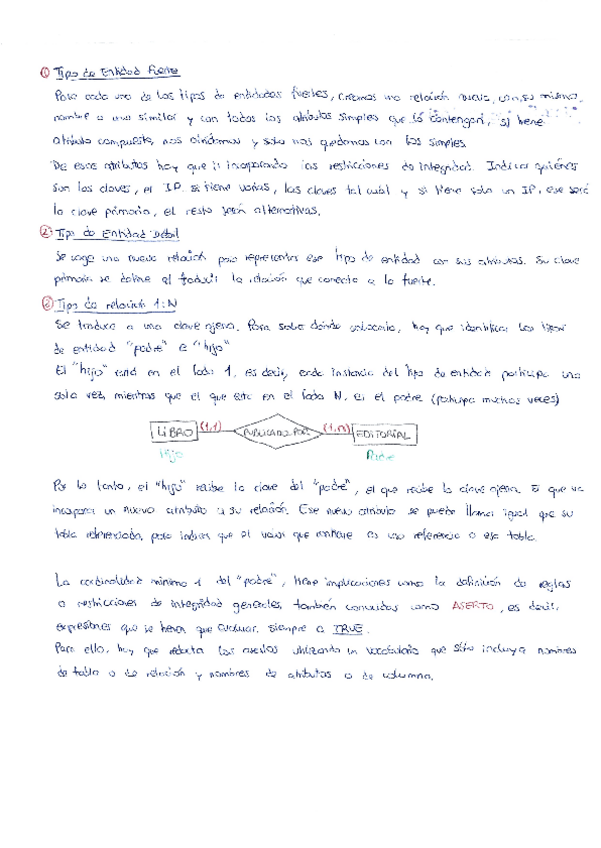 ① Tipo de Entidad Fuerte
Para cada uno de los tipos de entidades fuertes, creamos una relación nueva, con su mismo
nombre o uno similar y con todos los atributos simples que la contengan, si tiene
atributo compuesto, nos olvidamos y solo nos quedamos con los simples.
De esos atributos hay que ir incorporando las restricciones de integridad. Indicar quiénes
son las claves, el IP. si tiene varias, las claves tal cual y si tiene solo un IP, ese será
la clave primaria, el resto serán alternativas.
② Tipo de Entidad Débil
Se coge una nueva relación para representar ese tipo de entidad con sus atributos. Su clave
primaria se define al traducir la relación que conecta a la fuerte.
③ Tipo de relación 1:N
Se traduce a una clave ajena. Para saber dónde colocarla, hay que identificar los tipos
de entidad "padre" e "hijo"
El "hijo" está en el lado 1, es decir, cada instancia del tipo de entidad participa una
sola vez, mientras que el que está en el lado N, es el padre (participa muchas veces)
LIBRO (1,1) PUBLICADO POR (1,n) EDITORIAL
Hijo Padre
Por lo tanto, el "hijo" recibe la clave del "padre", el que recibe la clave ajena. El que va
incorpora un nuevo atributo a su relación. Ese nuevo atributo se puede llamar igual que su
tabla referenciada, para indicar que el valor que contiene es una referencia a esa tabla.
La cardinalidad mínima 1 del "padre", tiene implicaciones como la definición de reglas
o restricciones de integridad generales, también conocidas como ASERTO, es decir,
expresiones que se tienen que evaluar siempre a TRUE.
Para ello, hay que redactar los asertos utilizando un vocabulario que sólo incluya nombres
de tabla o de relación y nombres de atributos o de columna.